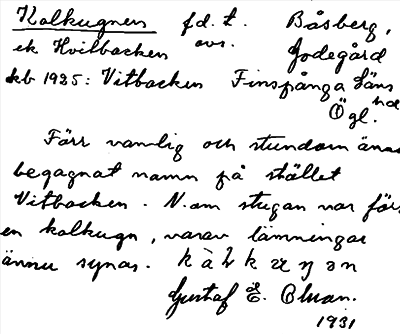 Kolkugnen fd. t. Båsberg,
ek Hvitbacken avs. Godegård
skb 1925: Vitbacken Finspånga läns
hd Ögl.
Förr vanlig och stundom änn
begagnat namn på stället
Vitbacken. N. om stugan var förr
en kolkugn, varav lämningar
ännu synas.
Gustaf E. Olsson.
1931